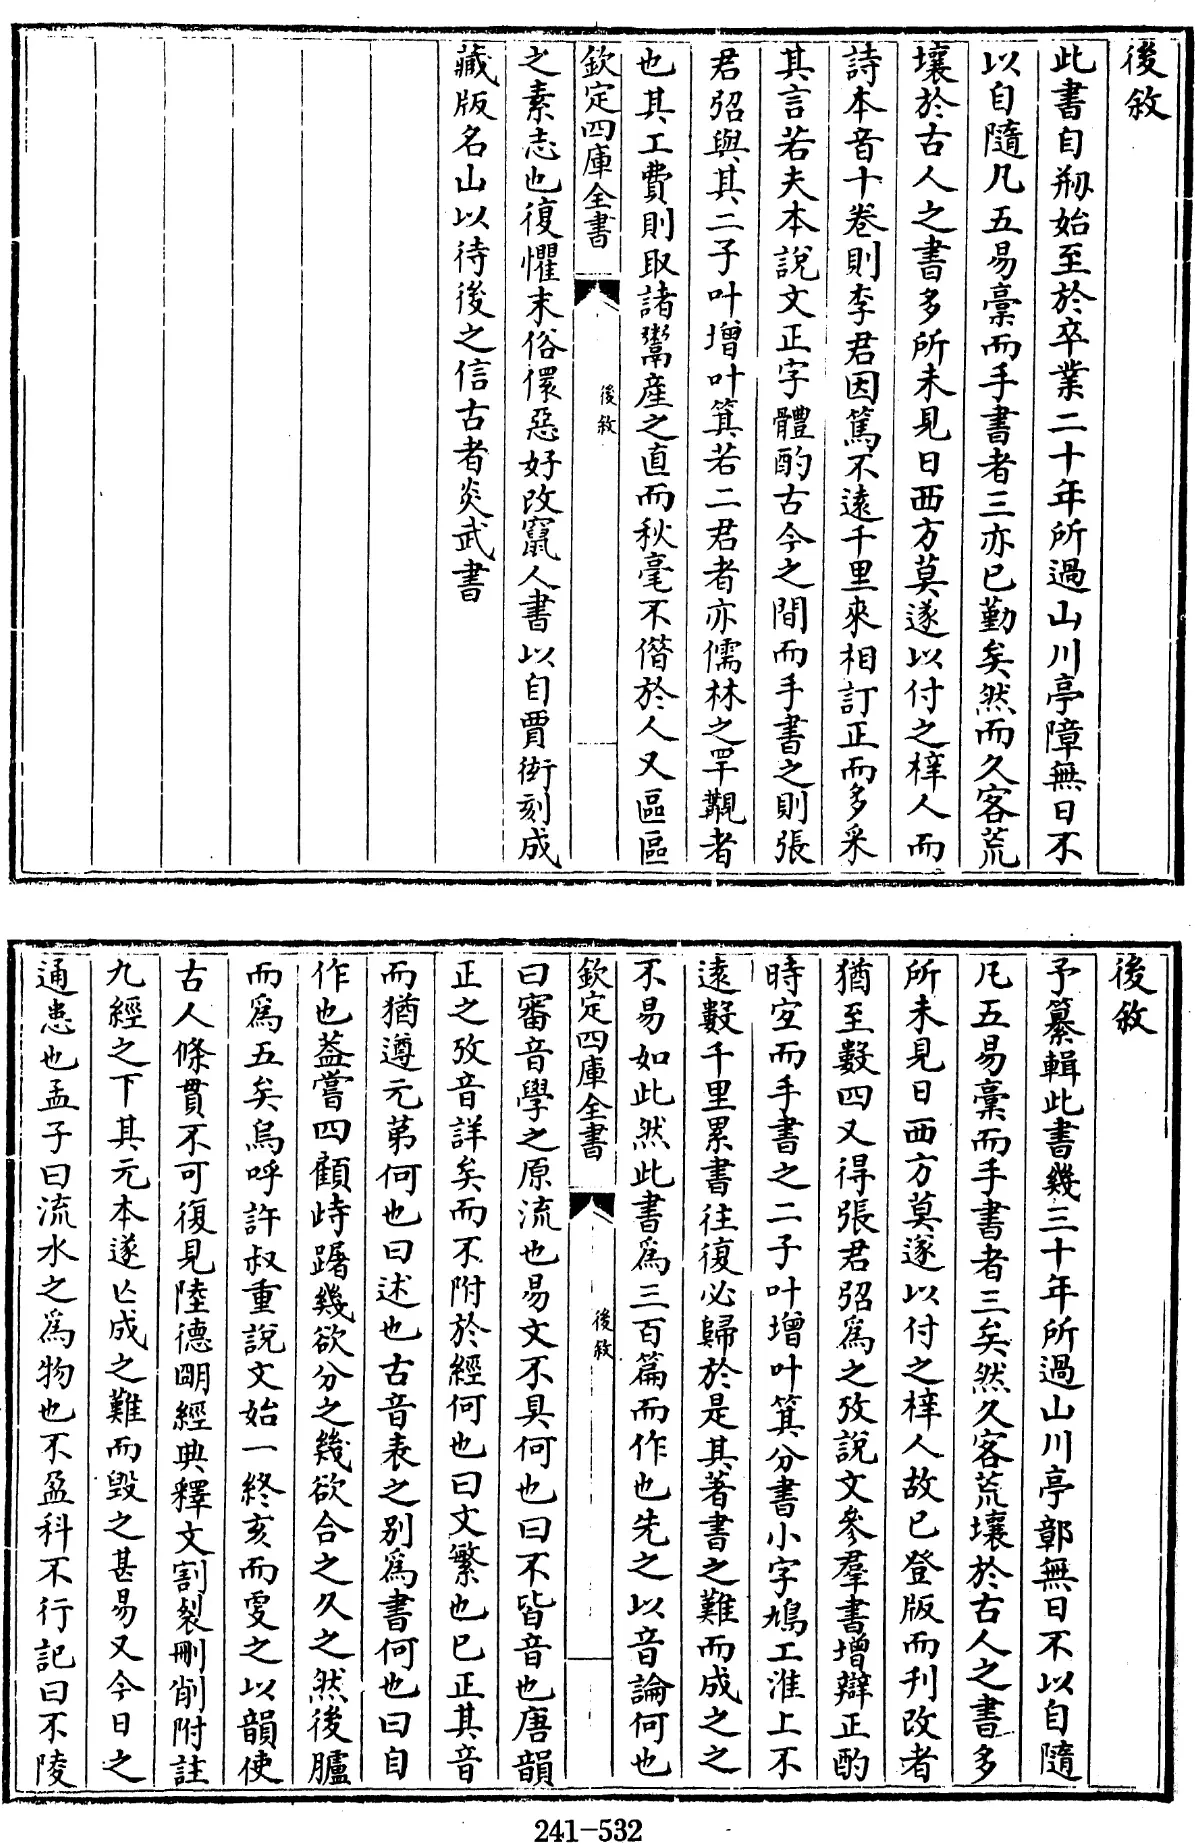 後敘
此書自刱始至於卒業二十年所過山川亭障無日不
以自隨凡五易稾而手書者三亦已勤矣然而久客荒
壤於古人之書多所未見日西方莫遂以付之梓人而
詩本音十卷則李君因篤不遠千里來相訂正而多采
其言若夫本說文正字體酌古今之間而手書之則張
君弨與其二子叶增叶箕若二君者亦儒林之罕覯者
也其工費則取諸鬻產之直而秋毫不借於人又區區
欽定四庫全書
後敘
之素志也復懼末俗儇惡好改竄人書以自賈衒刻成
藏版名山以待後之信古者炎武書
後敘
予纂輯此書幾三十年所過山川亭鄣無日不以自隨
凡五易稾而手書者三矣然久客荒壤於古人之書多
所未見日西方莫遂以付之梓人故已登版而刊改者
猶至數四又得張君弨為之攷說文參羣書增辯正酌
時宜而手書之二子叶增叶箕分書小字鳩工淮上不
遠數千里累書往復必歸於是其著書之難而成之之
不易如此然此書為三百篇而作也先之以音論何也
欽定四庫全書
後敘
曰審音學之原流也易文不具何也曰不皆音也唐韻
正之攷音詳矣而不附於經何也曰文繁也已正其音
而猶遵元第何也曰述也古音表之別為書何也曰自
作也蓋嘗四顧峙躇幾欲分之幾欲合之久之然後臚
而為五矣烏呼許叔重說文始一終亥而㪅之以韻使
古人條貫不可復見陸德朙經典釋文割裂刪削附註
九經之下其元本遂亾成之難而毀之甚易又今日之
通患也孟子曰流水之為物也不盈科不行記曰不陵
241-532